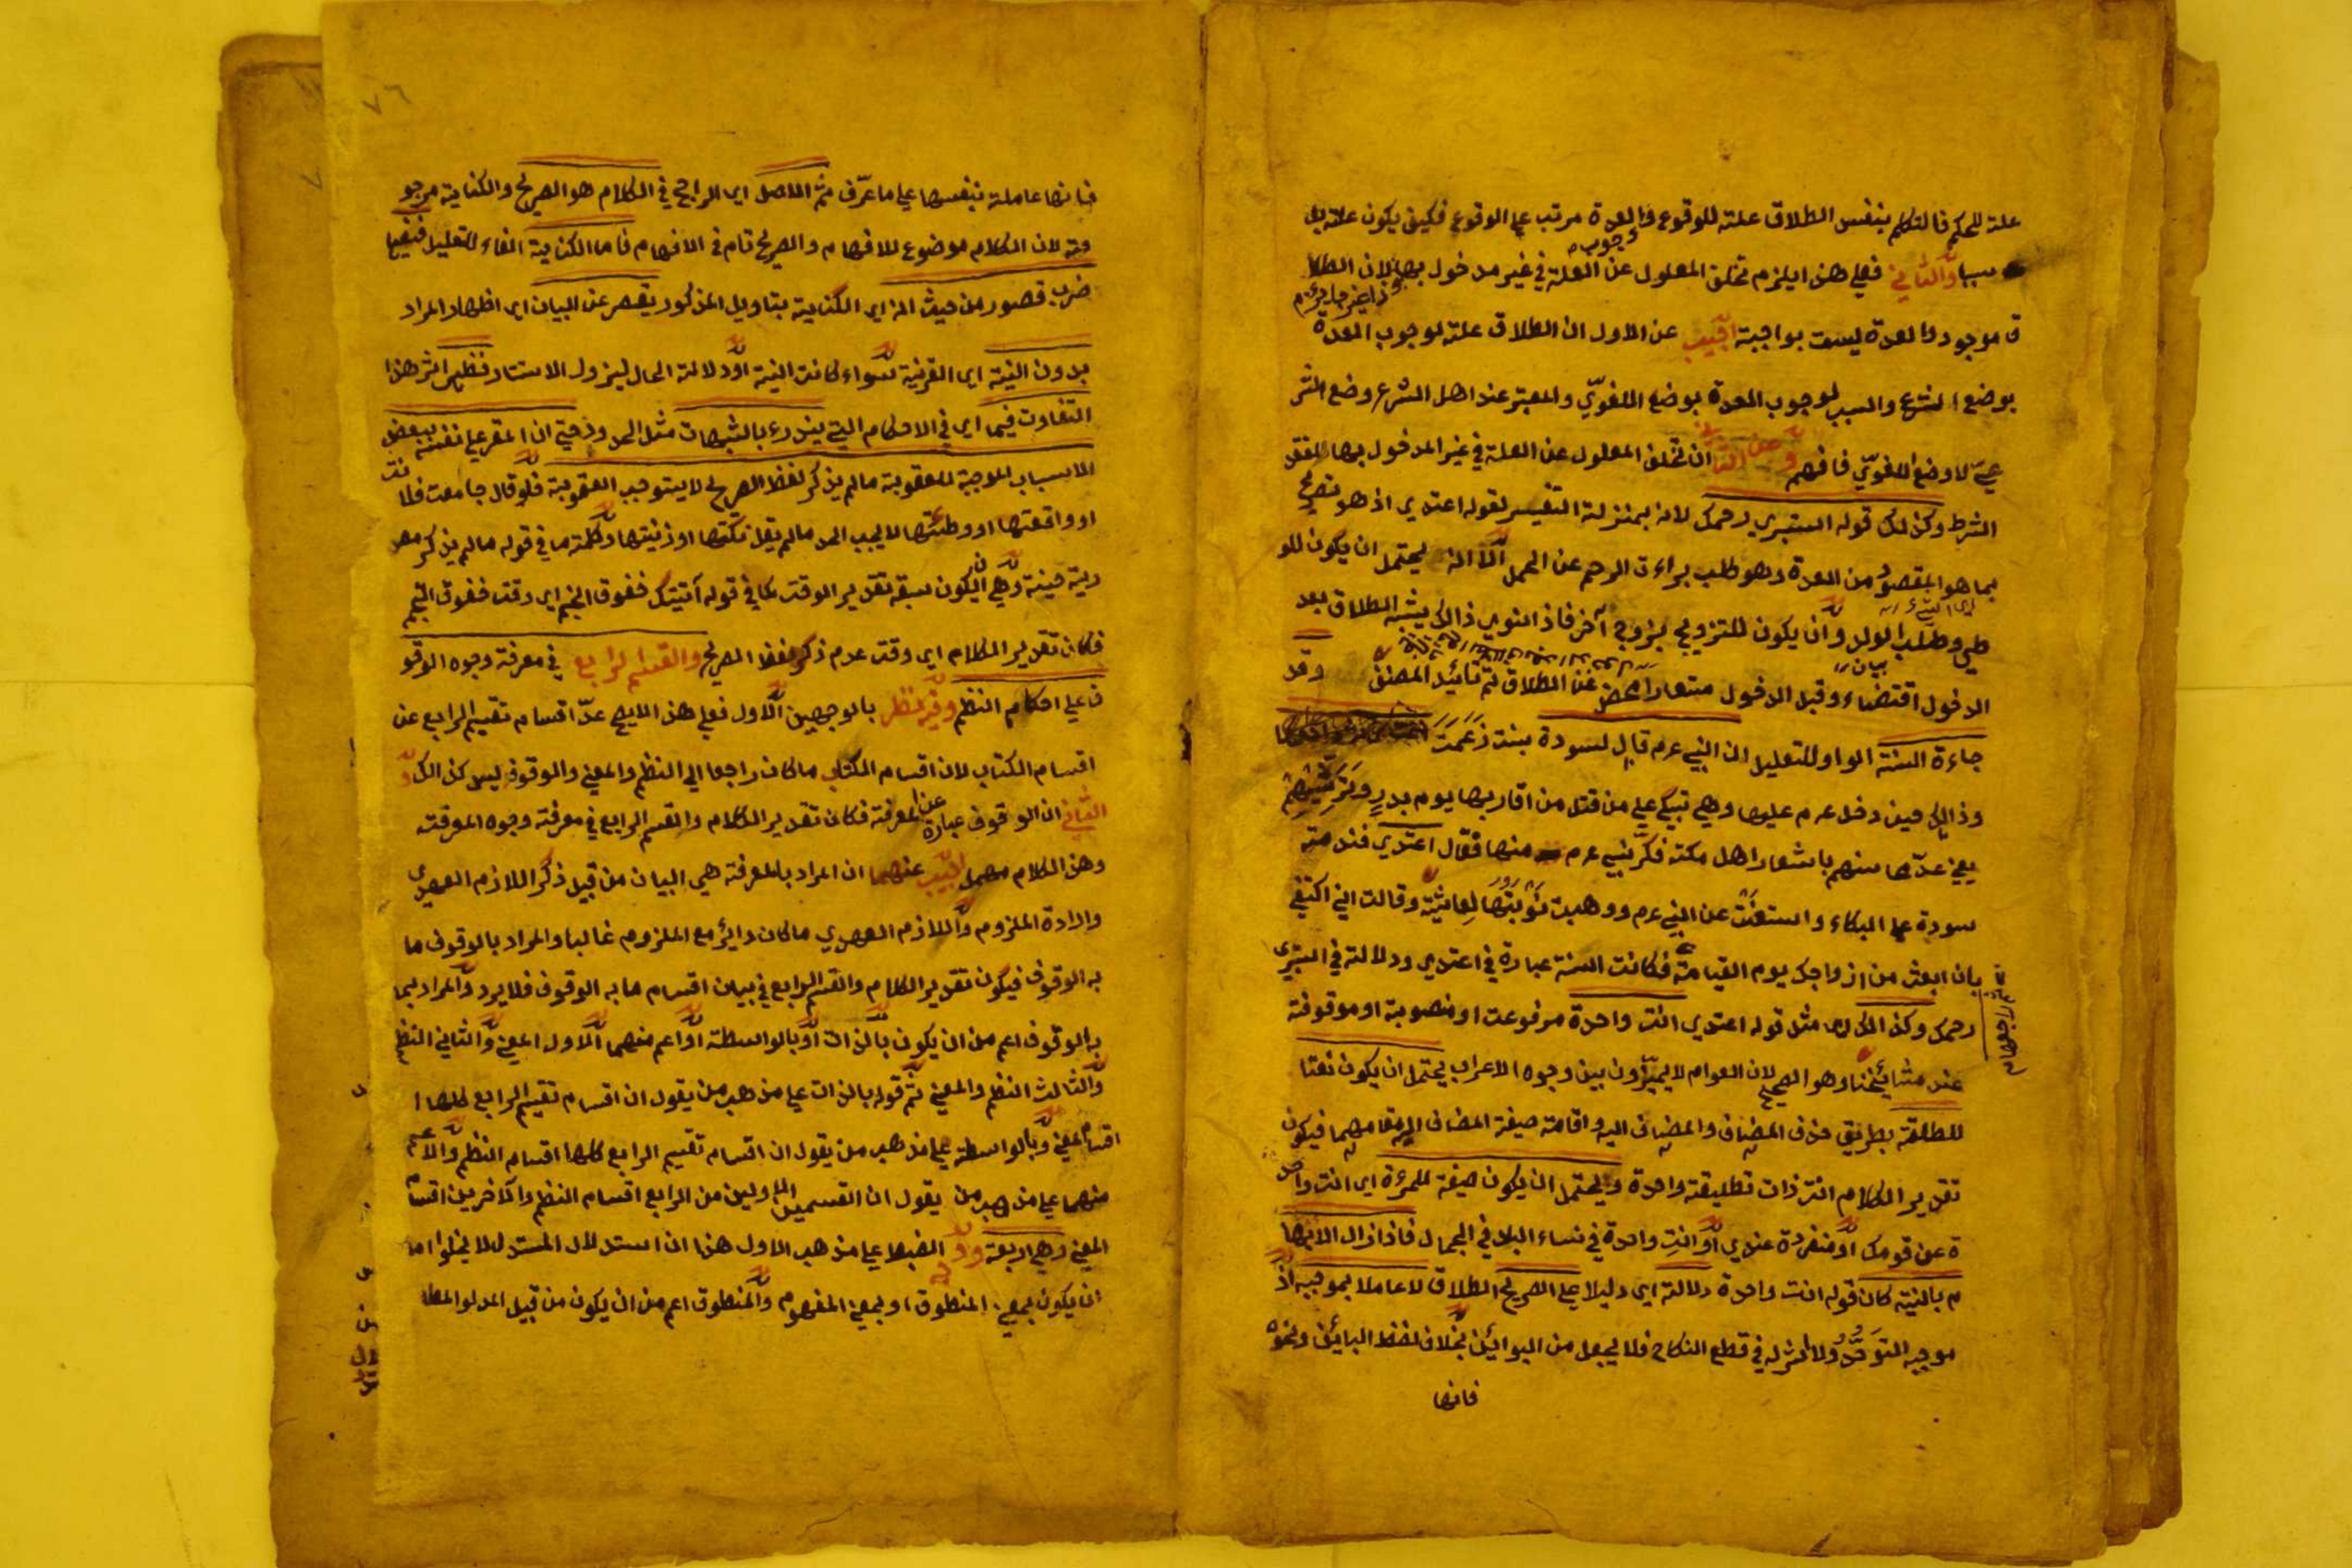 علة للحكم فالتكلم بنفس الطلاق علة للوقوع والعدة مرتب على الوقوع فكيف يكون علة بل
سببا والثاني فعلى هذا يلزم تخلف المعلول عن العلة في غير مدخول بها لان الطلا
وجوب
وذا غير جايز
ق موجود والعدة ليست بواجبة اجيب عن الاول ان الطلاق علة لوجوب العدة
بوضع الشرع والسبب لوجوب العدة بوضع اللغوي والمعتبر عند اهل الشرع وضع الشر
عي لا وضع اللغوي فافهم وعن الثا ان تخلف المعلول عن العلة في غير المدخول بها لفقد
الشرط وكذلك قوله استبري رحمك لانه بمنزلة التفسير لقوله اعتدي اذ هو تصريح
بما هو المقصود من العدة وهو طلب براءة الرحم عن الحمل الا انه يحتمل ان يكون للو
طي وطلب الولد وان يكون للتزويج بزوج آخر فاذا نوى ذالك يثبت الطلاق بعد
الدخول اقتضاء وقبل الدخول مستعارا محض عن الطلاق ثم تائيد المصنف وقد
بيان
جاءة السنة الواو للتعليل ان النبي عرم قال لسودة بنت زعمت
وذالك حين دخل عرم عليها وهي تبكي على من قتل من اقاربها يوم بدر وترثيهم
يعني عدها منهم باشعار اهل مكة فكره نبي عرم منها فقال اعتدي فندمة
سودة على البكاء واستعفت عن النبي عرم ووهبت نوبتها لعائشة وقالت اني اكتفي
بان ابعث من ازواجك يوم القيامة فكانت السنة عبارة في اعتدي ودلالة في استبري
رحمك وكذالك اي مثل قوله اعتدي انت واحدة مرفوعة او منصوبة او موقوفة
عند مشائخنا وهو الصحيح لان العوام لا يميزون بين وجوه الاعراب يحتمل ان يكون نعتا
للطلقة بطريق حذف المضاف والمضاف اليه واقامة صيغة المضاف اليه مقامهما فيكون
تقدير الكلام انت ذات تطليقة واحدة ويحتمل ان يكون صفة للمرءة اي انت واحد
ة عن قومك او منفردة عندي او انت واحدة في نساء البلد في الجمال فاذا زال الابها
م بالنية كان قوله انت واحدة دلالة اي دليلا على الصريح الطلاق لا عاملا بموجبه اذ
موجبه التوحد ولا اثر له في قطع النكاح فلا يجعل من البوائن بخلاف لفظ البائن ونحوه
فانها
٧٦
فانها عاملة بنفسها على ما عرف ثم الاصل اي الراجح في الكلام هو الصريح والكناية مرجو
حة لان الكلام موضوع للافهام والصريح تام في الافهام فاما الكناية الفاء للتعليل ففيها
ضرب قصور من حيث انه اي الكناية بتاويل المذكور يقصر عن البيان اي اظهار المراد
بدون النية اي القرينة سواء كانت النية او دلالة الحال ليزول الاستتار فظهر اثر هذا
التفاوت فيما اي في الاحكام التي يندرء بالشبهات مثل الحدود حتى ان المقر على نفسه ببعض
الاسباب الموجبة للعقوبة مالم يذكر لفظ الصريح لا يستوجب العقوبة فلو قال جامعت فلانت
او واقعتها او وطئتها لا يجب الحد مالم يقل نكتها او زنيتها وكلمة ما في قوله مالم يذكر مصد
رية حينية وهي ان يكون بسبقة تقدير الوقت كما في قوله آتيتك خفوق النجم اي وقت خفوق النجم
فكان تقدير الكلام اي وقت عدم ذكر لفظ الصريح والقسم الرابع في معرفة وجوه الوقو
ف على احكام النظم وفيه نظر بالوجهين الاول فعلى هذا لا يصح عد اقسام تقسيم الرابع عن
اقسام الكتاب لان اقسام الكتاب ما كان راجعا الى النظم والمعنى والوقوف ليس كذالك و
الثاني ان الوقوف عبارة عن المعرفة فكان تقدير الكلام والقسم الرابع في معرفة وجوه المعرفة
وهذا الكلام مهمل اجيب عنهما ان المراد بالمعرفة هي البيان من قبيل ذكر اللازم العصري
وارادة الملزوم واللازم العصري ما كان دائر مع الملزوم غالبا والمراد بالوقوف ما
به الوقوف فيكون تقدير الكلام والقسم الرابع في بيان اقسام ما به الوقوف فلا يرد والمراد بما
به الوقوف اعم من ان يكون بالذات او بالواسطة او اعم منهما الاول المعنى والثاني النظم
والثالث النظم والمعنى ثم قوله بالذات على مذهب من يقول ان اقسام تقسيم الرابع كلها ا
اقسام المعنى وبالواسطة على مذهب من يقول ان اقسام تقسيم الرابع كلها اقسام النظم والاعم
منهما على مذهب من يقول ان القسمين الاولين من الرابع اقسام النظم والآخرين اقسام
المعنى وهي اربعة ووجه الضبط على مذهب الاول هذا ان استدلال المستدل لا يخلوا اما
ان يكون بمعنى المنطوق او بمعنى المفهوم والمنطوق اعم من ان يكون من قبيل المدلو المطا